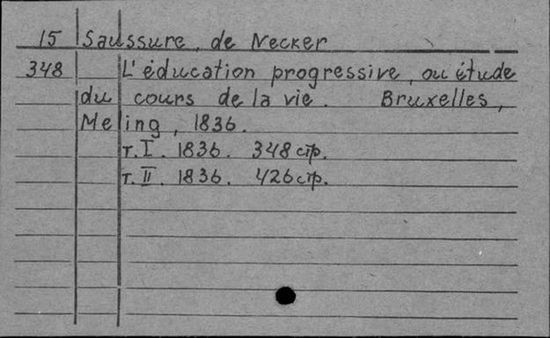 15 Saussure, de Necker
348 L'éducation progressive, ou étude
du cours de la vie. Bruxelles,
Meling, 1836.
т. I. 1836. 348 стр.
т. II. 1836. 426 стр.